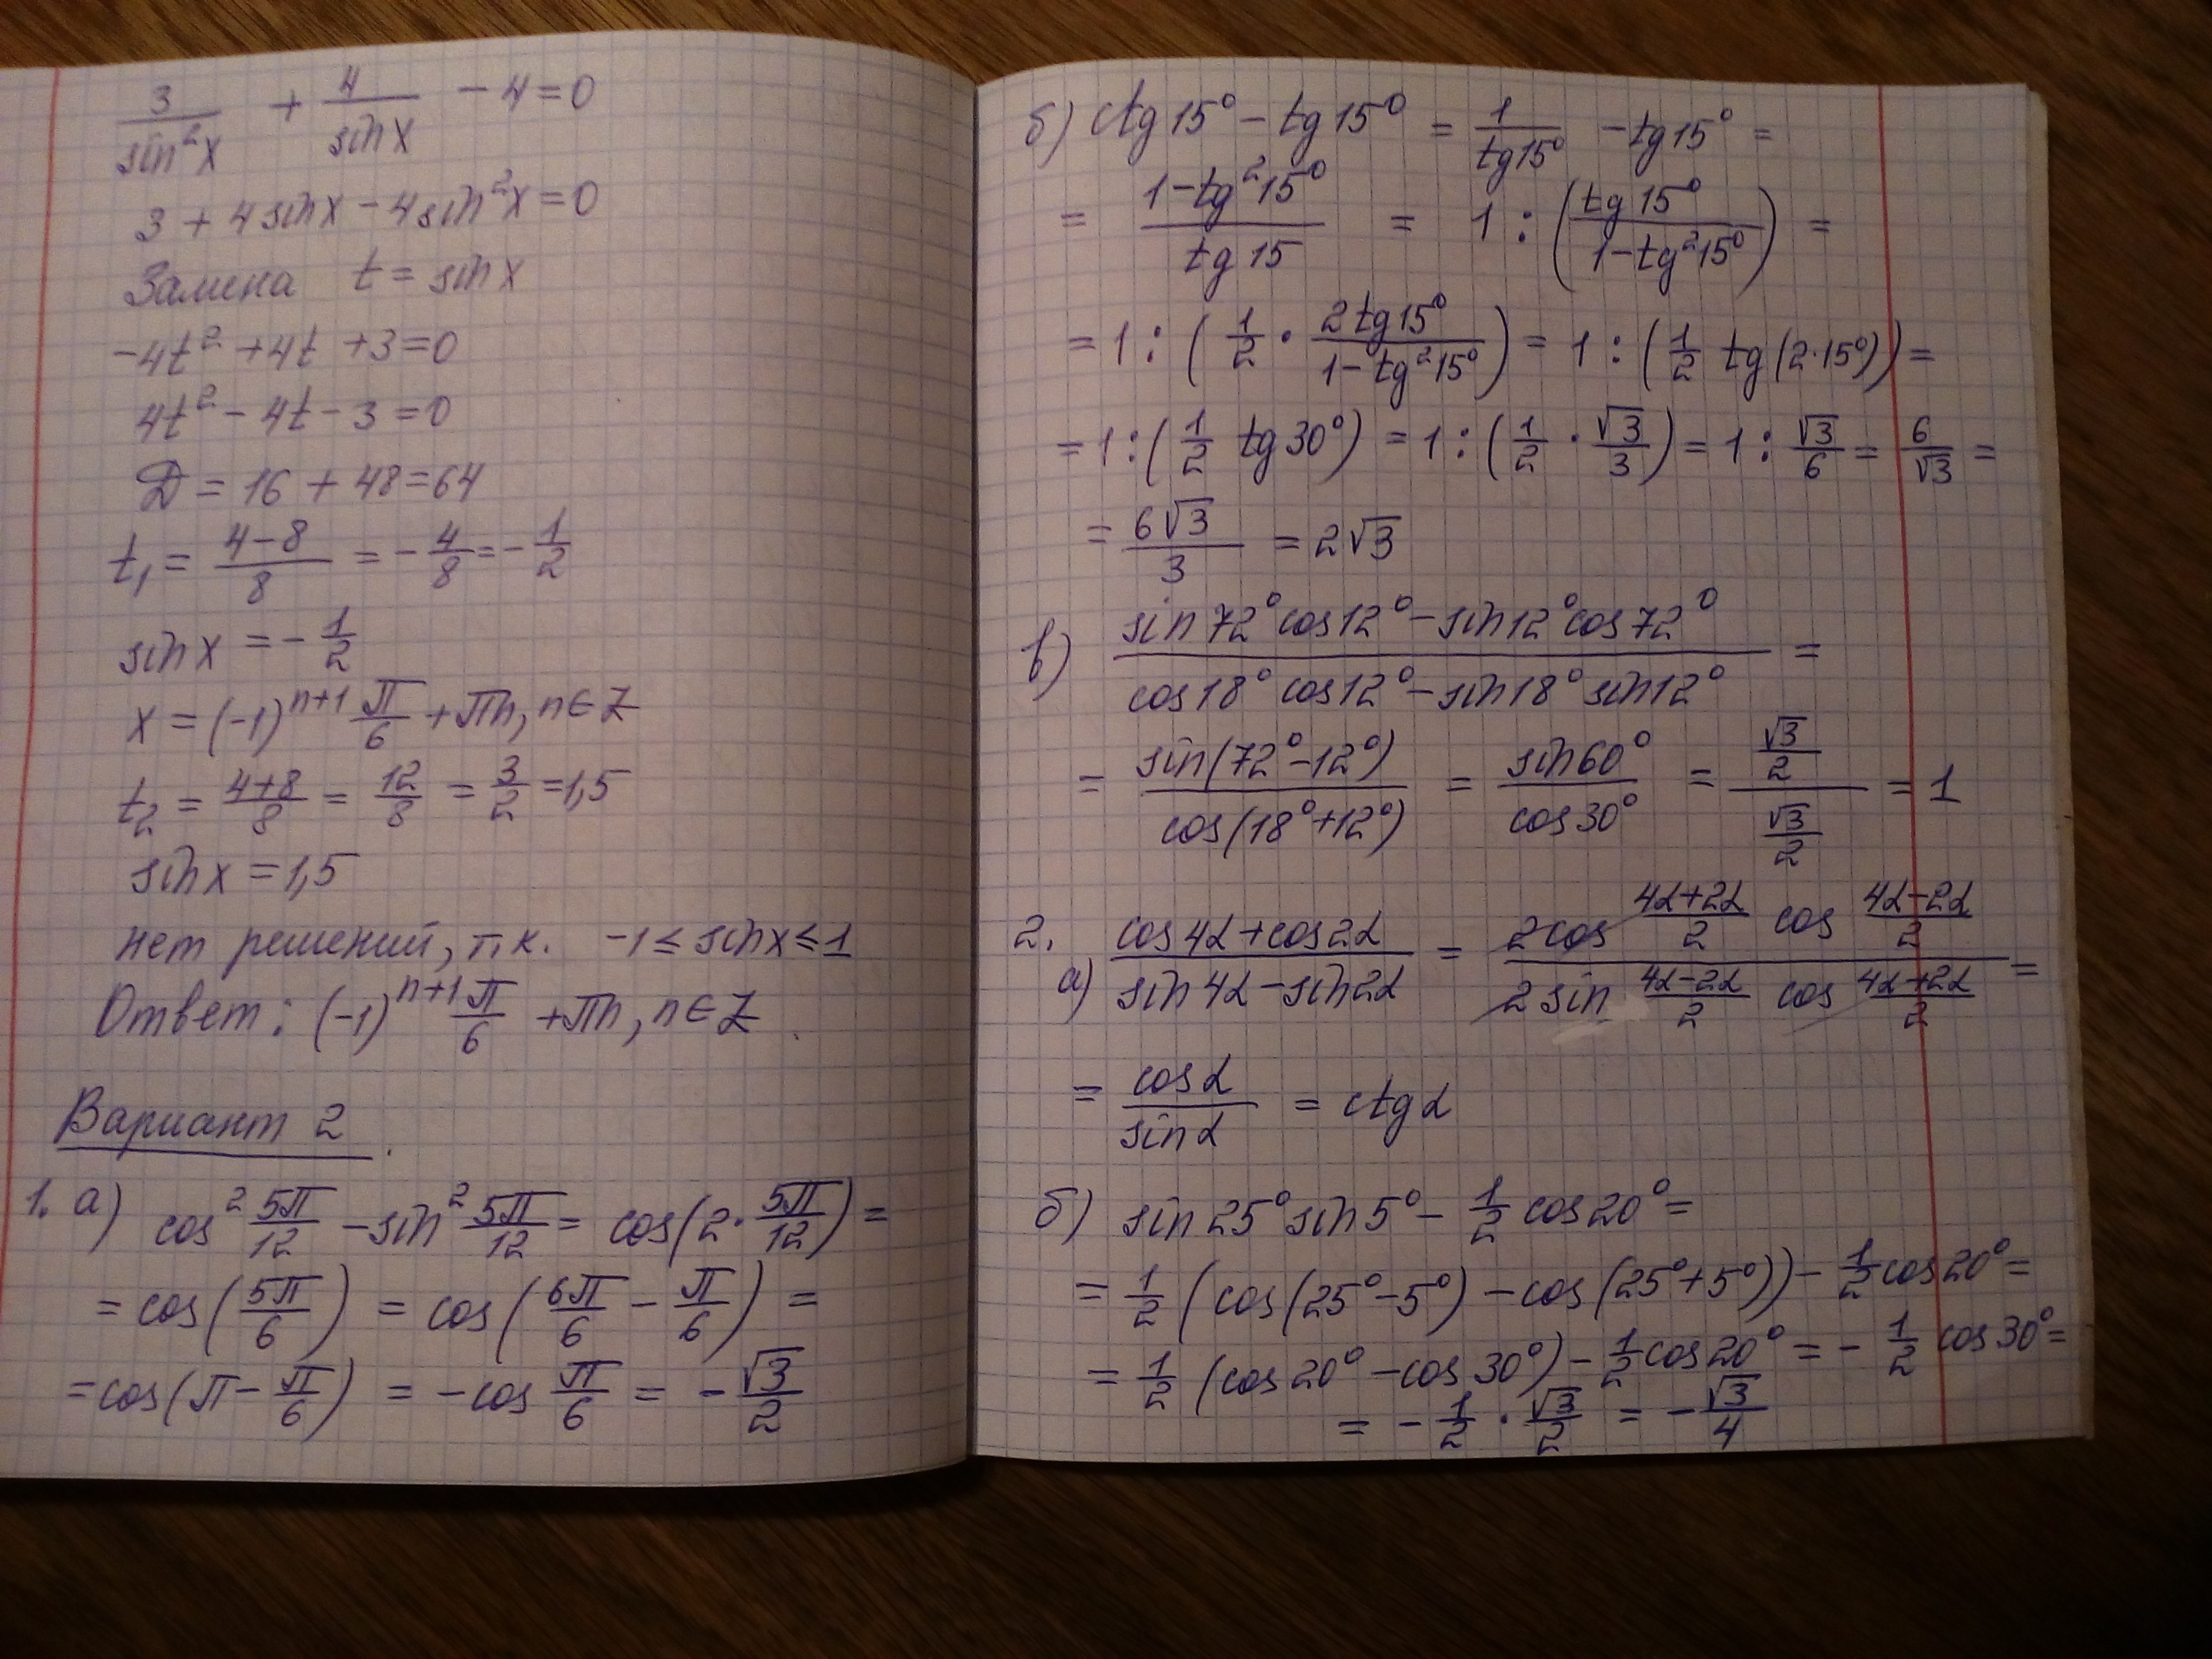 3/sin²x + 4/sinx - 4 = 0
3 + 4sinx - 4sin²x = 0
Замена t = sinx
-4t² + 4t + 3 = 0
4t² - 4t - 3 = 0
D = 16 + 48 = 64
t₁ = (4-8)/8 = -4/8 = -1/2
sinx = -1/2
x = (-1)ⁿ⁺¹ π/6 + πn, n∈Z
t₂ = (4+8)/8 = 12/8 = 3/2 = 1,5
sinx = 1,5
нет решений, т.к. -1 ≤ sinx ≤ 1
Ответ: (-1)ⁿ⁺¹ π/6 + πn, n∈Z
Вариант 2
1. а) cos² 5π/12 - sin² 5π/12 = cos(2·5π/12) =
= cos(5π/6) = cos(6π/6 - π/6) =
= cos(π - π/6) = -cos π/6 = -√3/2
б) ctg15° - tg15° = 1/tg15° - tg15° =
= (1-tg²15°)/tg15 = 1 : (tg15°/(1-tg²15°)) =
= 1 : (1/2 · 2tg15°/(1-tg²15°)) = 1 : (1/2 tg(2·15°)) =
= 1 : (1/2 tg30°) = 1 : (1/2 · √3/3) = 1 : √3/6 = 6/√3 =
= 6√3/3 = 2√3
в) (sin72°cos12° - sin12°cos72°)/(cos18°cos12° - sin18°sin12°) =
= sin(72°-12°)/cos(18°+12°) = sin60°/cos30° = (√3/2)/(√3/2) = 1
2. а) (cos4α + cos2α)/(sin4α - sin2α) = (2cos (4α+2α)/2 cos (4α-2α)/2)/(2sin (4α-2α)/2 cos (4α+2α)/2) =
= cosα/sinα = ctgα
б) sin25°sin5° - 1/2 cos20° =
= 1/2 (cos(25°-5°) - cos(25°+5°)) - 1/2 cos20° =
= 1/2 (cos20° - cos30°) - 1/2 cos20° = - 1/2 cos30° =
= - 1/2 · √3/2 = - √3/4